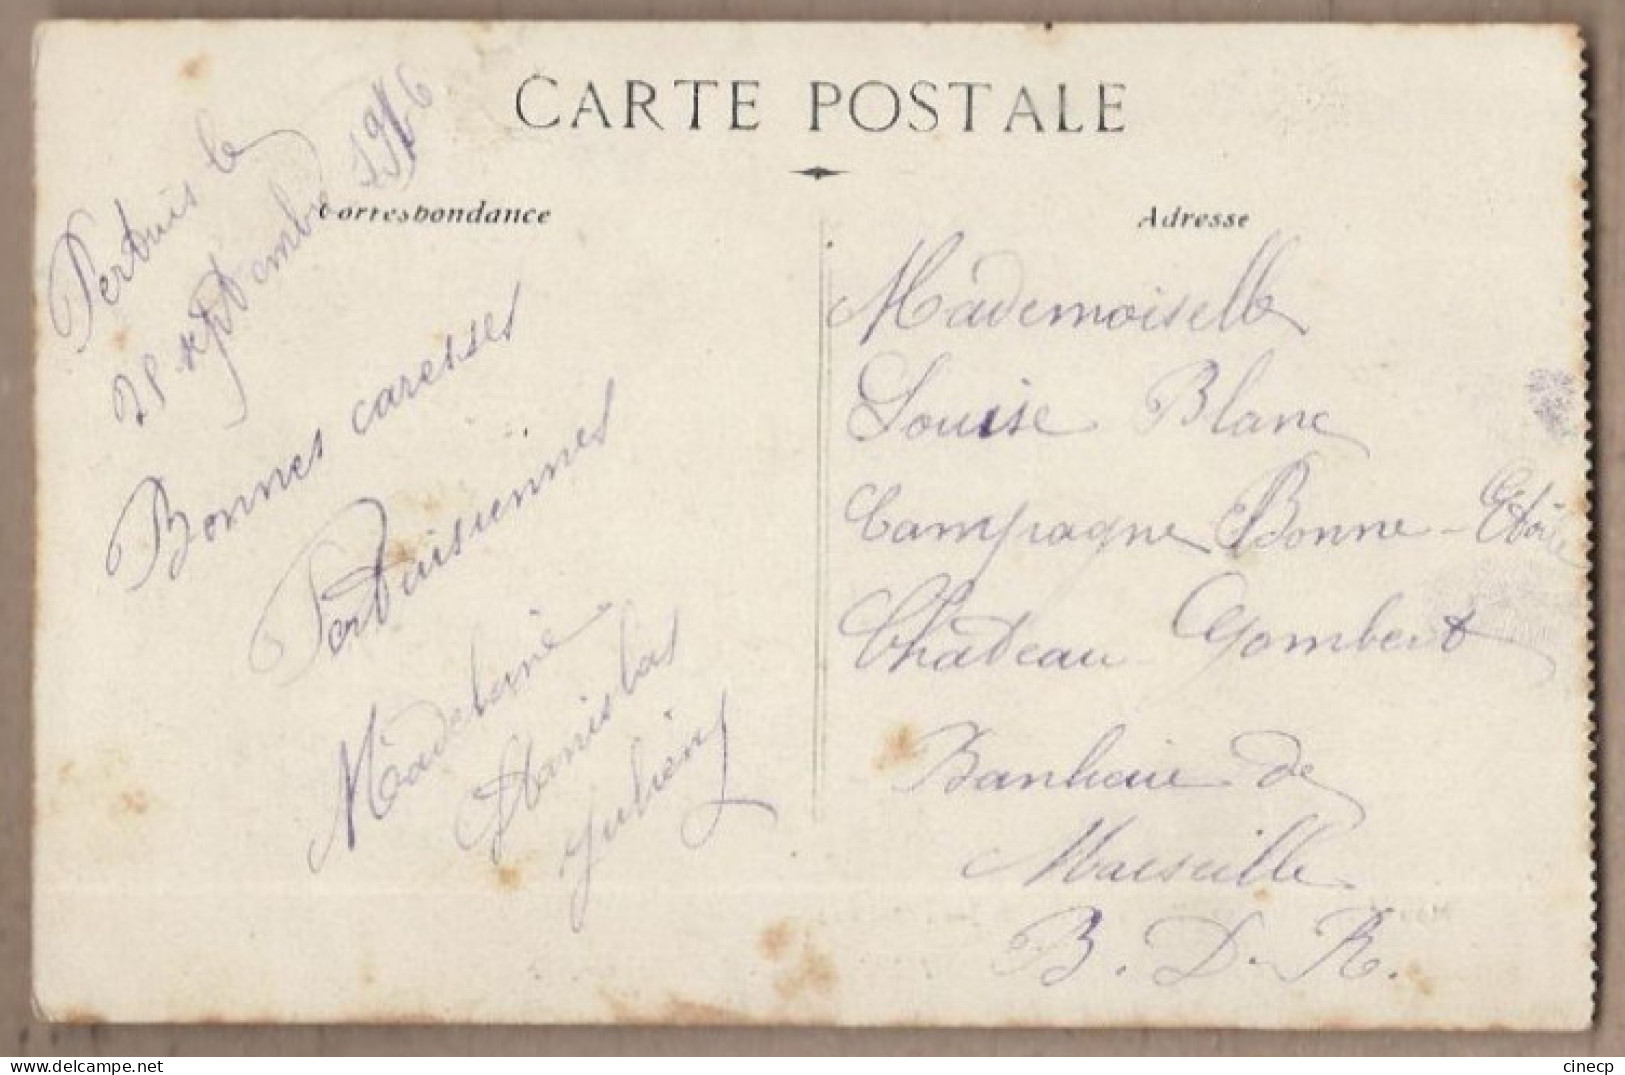 CARTE POSTALE
Correspondance
Pertuis le
28 septembre 1916
Bonnes caresses
Pertuisiennes
Madeleine
Stanislas
Julien
Adresse
Mademoiselle
Louise Blanc
Campagne Bonne-Etoile
Chateau-Gombert
Banlieue de
Marseille
B. D. R.
cinecp
delcampe.net